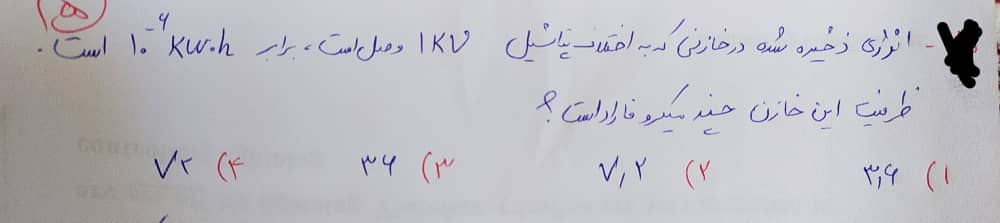 ۵
- انرژی ذخیره شده در خازنی که به اختلاف پتانسیل 1KV وصل است، برابر 10⁻⁶ kw.h است.
ظرفیت این خازن چند میکروفاراد است؟
۱) ۳٫۶ ۲) ۷٫۲ ۳) ۳۶ ۴) ۷۲